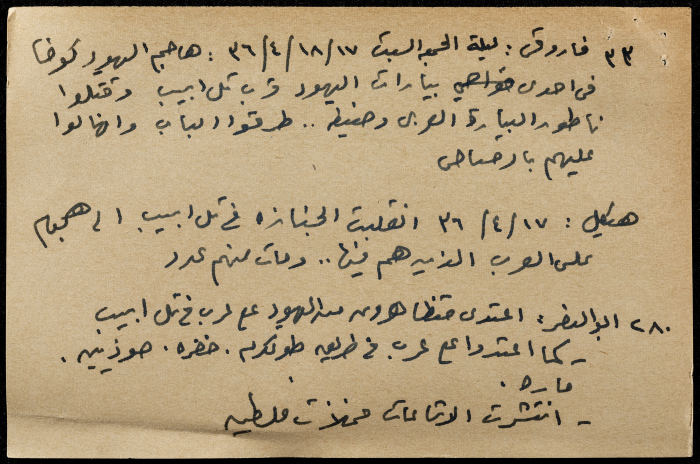 ٣٣ فاروق : ليلة الجمعة السبت ١٧/١٨/٤/٣٦ : هاجم اليهود كوخا
في احدى بيارات اليهود قرب تل ابيب وقتلوا
ناطور البيارة العربي وضيفه .. طرقوا الباب وانهالوا
عليهم بالرصاص
هيكل : ١٧/٤/٣٦ انقلبت الجنازه في تل ابيب الى هجوم
على العرب الذين هم فيها .. ومات منهم عدد
٢٨٠ ابو النصر : اعتدى متظاهرون من اليهود على عرب في تل ابيب
- كما اعتدوا على عرب في طريق طولكرم . خضره .
ماره .
- انتشرت الاشاعات فلسطين